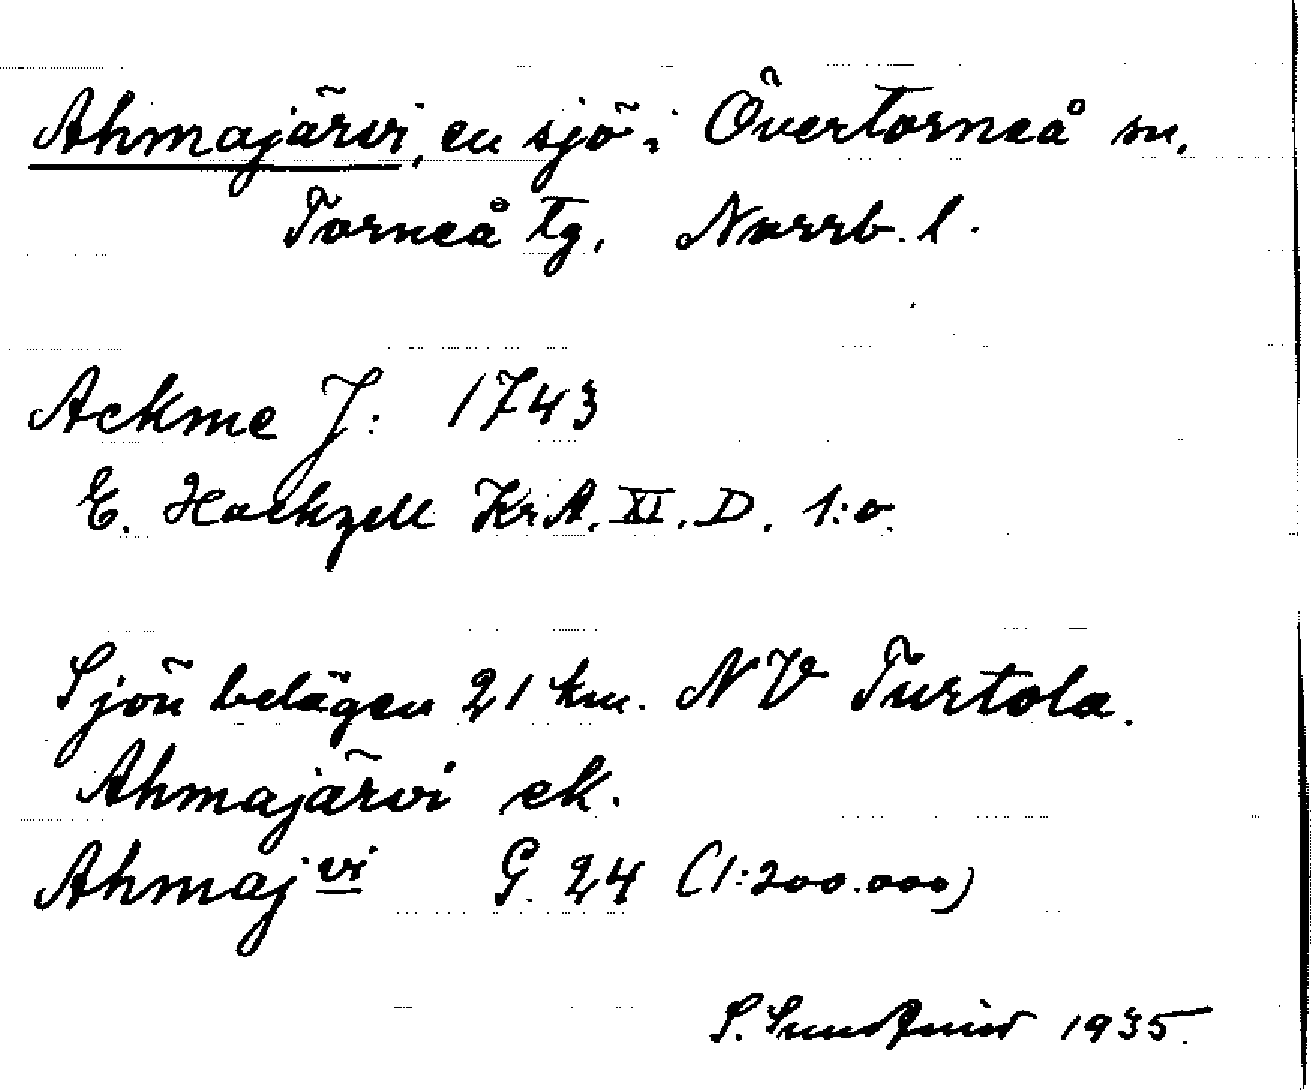 Ahmajärvi, en sjö i Övertorneå sn.
Torneå tg, Norrb. l.
Ackme J: 1743
E. Hackzell Kr.A. XI. D. 1:o.
Sjön belägen 21 km. NV Turtola.
Ahmajärvi ek.
Ahmaj vi G. 24 (1:200.000)
S. 1935.